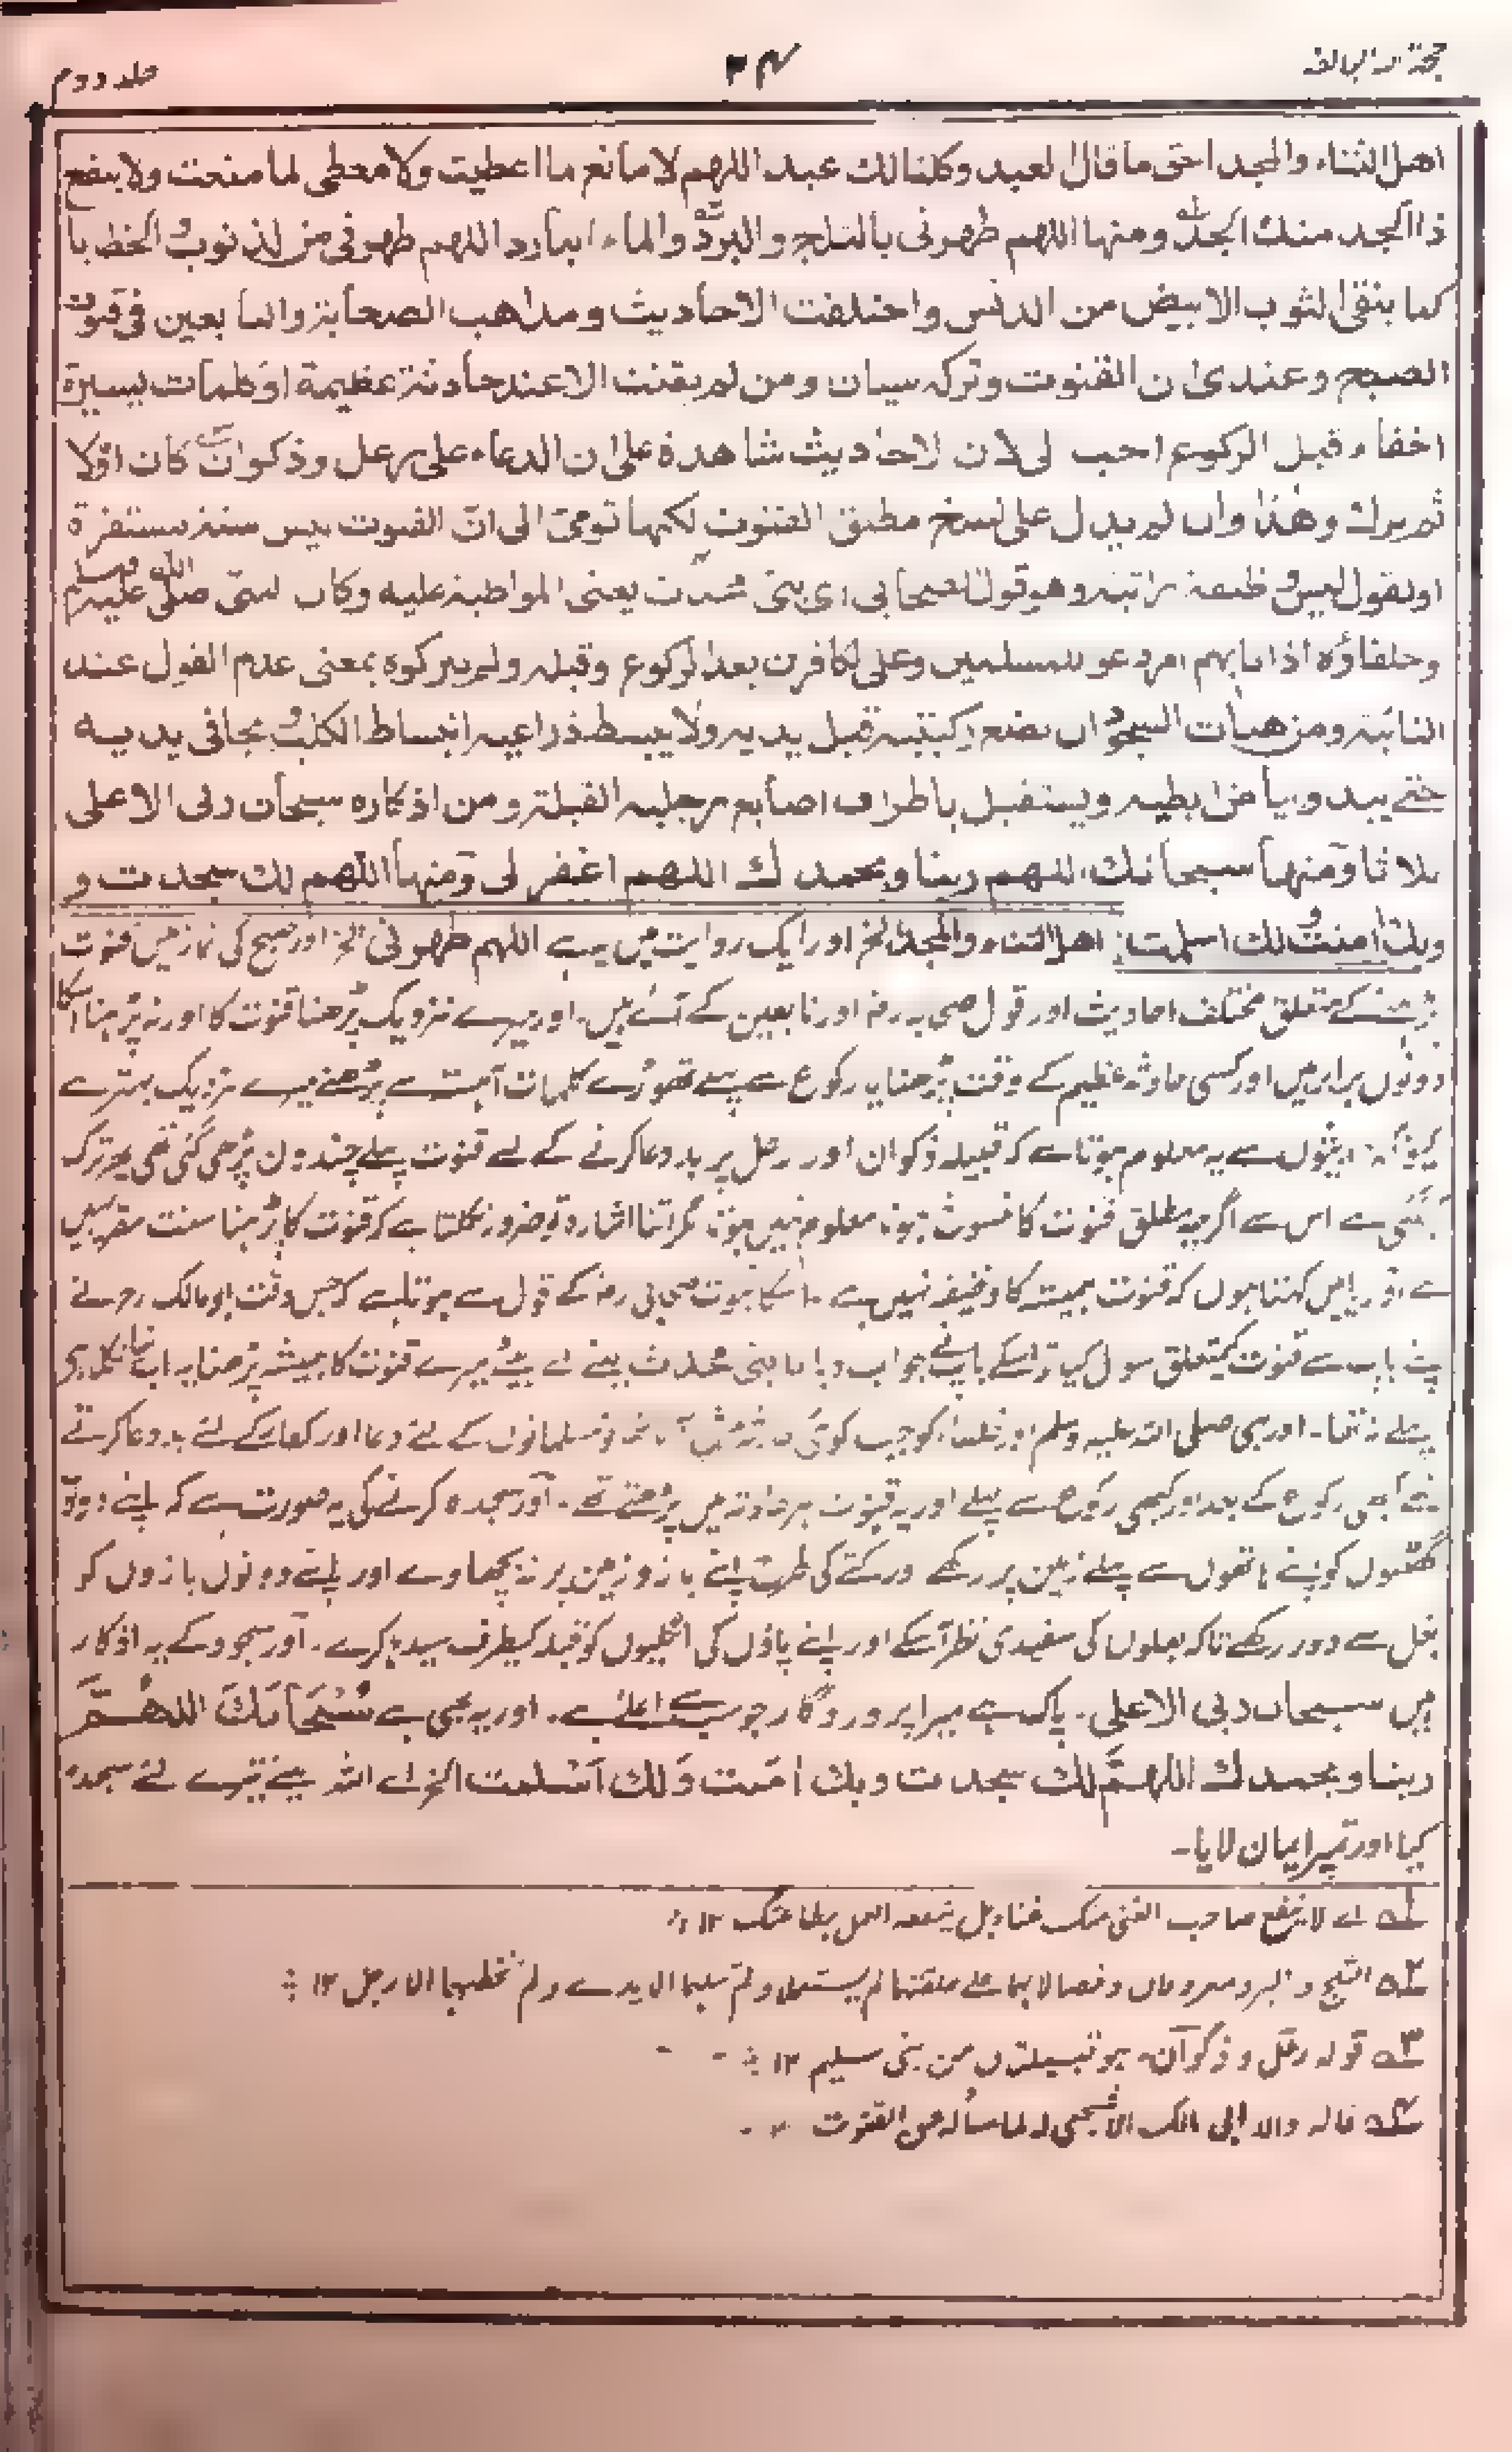 حجة اللہ البالغہ
۲۴
جلد دوم
اهل الثناء والمجد احق ما قال العبد وكلنا لك عبد اللهم لا مانع لما اعطيت ولا معطى لما منعت ولا ينفع
ذا الجد منك الجد ومنها اللهم طهرنى بالثلج والبرد والماء البارد اللهم طهرنى من الذنوب والخطايا
كما ينقى الثوب الابيض من الدنس واختلفت الاحاديث ومذاهب الصحابة والتابعين فى قنوت
الصبح وعندى ان القنوت وتركه سيان ومن لم يقنت الا عند حادثة عظيمة او كلمات يسيرة
اخفاء قبل الركوع احب الى لان الاحاديث شاهدة على ان الدعاء على رعل وذكوان كان اولا
ثم ترك وهذا وان لم يدل على نسخ مطلق القنوت لكنها تومئ الى ان القنوت ليس سنة مستقرة
او نقول ليس وظيفة راتبة وهو قول الصحابى اى بنى محدث يعنى المواظبة عليه وكان النبى صلى الله عليه وسلم
وخلفاؤه اذا نابهم امر دعو للمسلمين وعلى الكافرين بعد الركوع وقبله ولم يتركوه بمعنى عدم القول عند
النائبة ومن هيأت السجود ان يضع ركبتيه قبل يديه ولا يبسط ذراعيه انبساط الكلب يجافى يديه
حتى يبدو بياض ابطيه ويستقبل باطراف اصابع رجليه القبلة ومن اذكاره سبحان ربى الاعلى
ثلاثا ومنها سبحانك اللهم ربنا وبحمدك اللهم اغفر لى ومنها اللهم لك سجدت و
وبك امنت ولك اسلمت: اهل الثناء والمجد الخ اور ایک روایت میں ہے اللهم طهرنى الخ اور صبح کی نماز میں قنوت
پڑہنے کے متعلق مختلف احادیث اور قول صحابہ رض اور تابعین کے آئے ہیں۔ اور میرے نزدیک پڑھنا قنوت کا اور نہ پڑہنا اسکا
دونوں برابر ہیں اور کسی حادثہ عظیم کے وقت پڑھنا یا رکوع سے پہلے تھوڑے کلمات آہستہ سے پڑھنے میرے نزدیک بہتر ہے
کیونکہ حدیثوں سے یہ معلوم ہوتا ہے کہ قبیلہ ذکوان اور رعل پر بددعا کرنے کے لئے قنوت پہلے چند دن پڑھی گئی تھی پھر ترک
کی گئی ہے اس سے اگرچہ مطلق قنوت کا منسوخ ہونا معلوم نہیں ہوتا مگر اتنا اشارہ تو ضرور نکلتا ہے کہ قنوت کا پڑہنا سنت مقررہ نہیں
ہے اور یا میں کہتا ہوں کہ قنوت ہمیشہ کا وظیفہ نہیں ہے۔ اسکا ثبوت صحابی رض کے قول سے ہوتا ہے کہ جس وقت ابو مالک رح نے
اپنے باپ سے قنوت کے متعلق سوال کیا تو اسکے باپ نے جواب دیا یا بنی محدث یعنے اے بیٹے میرے قنوت کا ہمیشہ پڑھنا یہ اب نیا نکلا ہے
پہلے نہ تھا۔ اور نبی صلی اللہ علیہ وسلم اور خلفاء کو جب کوئی حادثہ پیش آتا تھا تو مسلمانوں کے لئے دعا اور کفار کے لئے بددعا کرتے
تھے کبھی رکوع کے بعد اور کبھی رکوع سے پہلے اور یہ قنوت ہر حادثہ میں پڑھتے تھے۔ اور سجدہ کرنے کی یہ صورت ہے کہ اپنے دونو
گھٹنوں کو اپنے ہاتھوں سے پہلے زمین پر رکھے اور کتے کی طرح اپنے بازو زمین پر نہ بچھاوے اور اپنے دونوں بازوں کو
بغل سے دور رکھے تاکہ بغلوں کی سفیدی نظر آسکے اور اپنے پاؤں کی انگلیوں کو قبلہ کیطرف سیدہا کرے۔ اور سجود کے یہ اذکار
ہیں سبحان ربى الاعلى۔ پاک ہے میرا پروردگار جو سب سے اعلیٰ ہے۔ اور یہ بھی ہے سُبْحَانَكَ اللهُمَّ
ربنا وبحمدك اللهم لك سجدت وبك امنت ولك اسلمت الخ اے اللہ مینے تیرے لئے سجدہ
کیا اور تجھپر ایمان لایا۔
۱ اے لا ینفع صاحب الغنی منک غناہ بل ینفعہ العمل بطاعتک ۱۲
۲ الثلج والبرد لم یستعملا ولم الایدے ولم الارجل ۱۲
۳ قولہ رعل و ذکوان ہو قبیلتان من بنی سلیم ۱۲
۴ قالہ والد ابی مالک الاشجعی لہ لما سألہ عن القنوت ۱۲